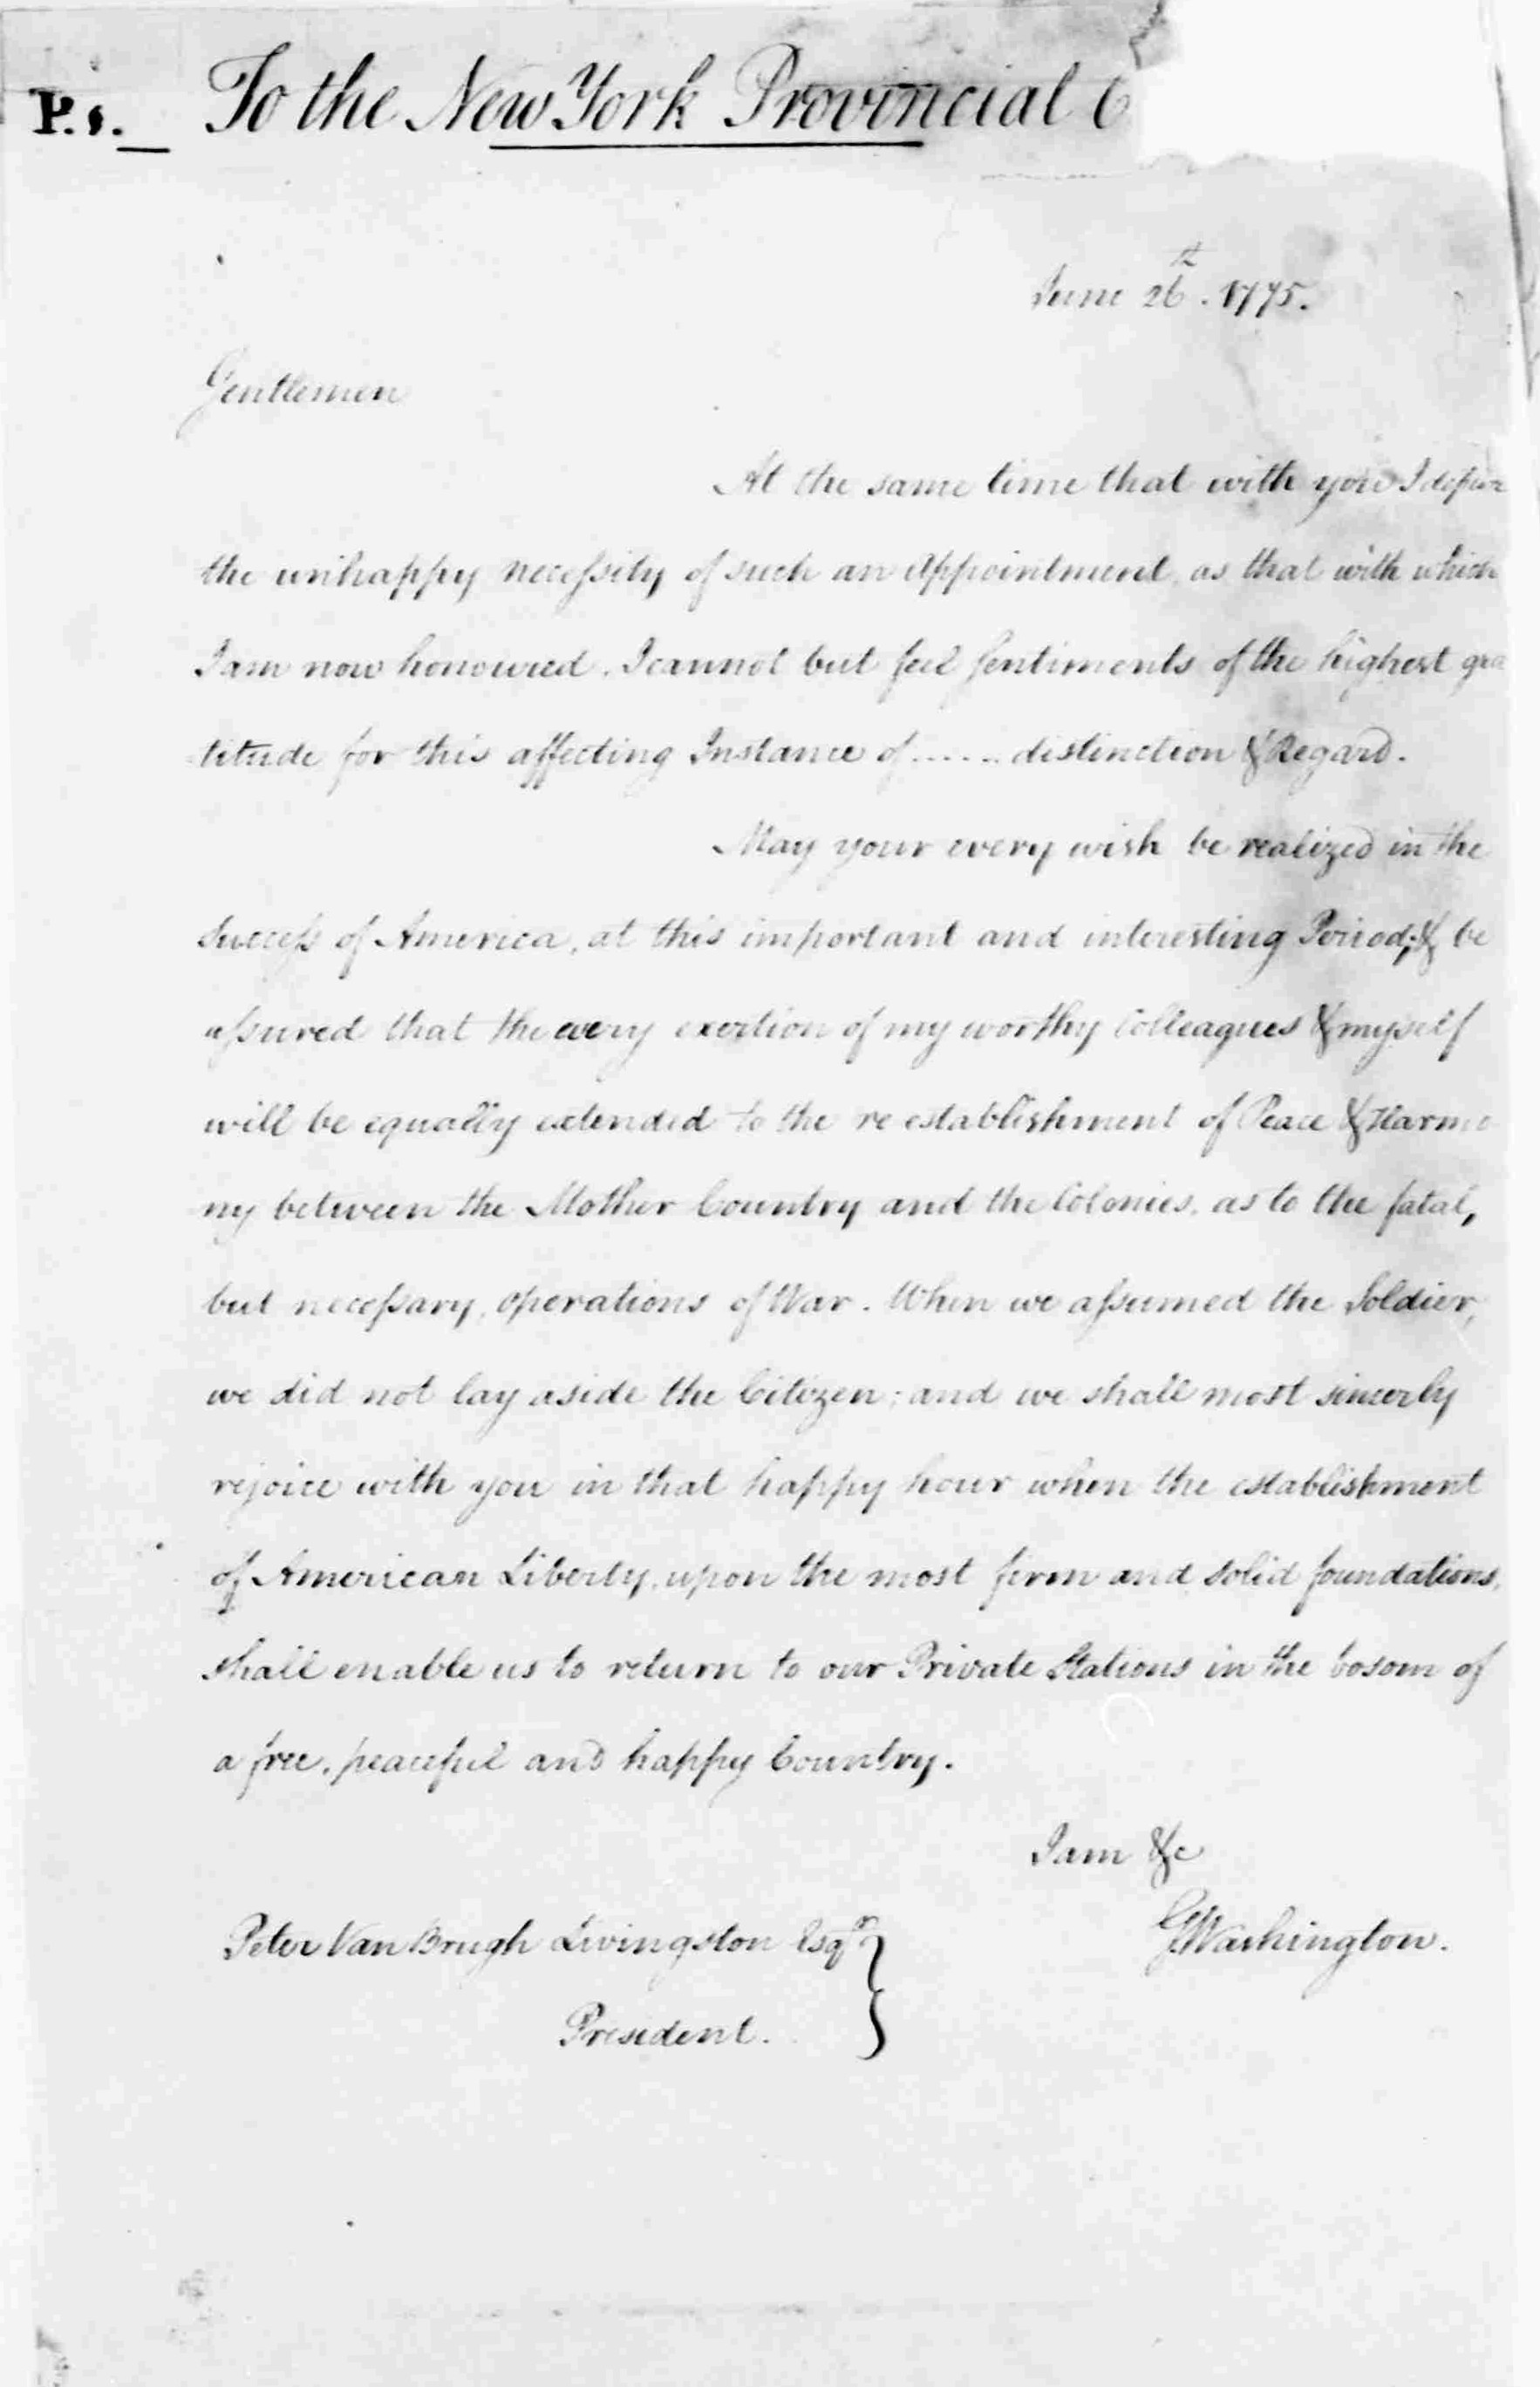 P.s. To the New York Provincial C
June 26th. 1775.
Gentlemen
At the same time that with you I deplore
the unhappy necessity of such an Appointment, as that with which
I am now honoured. I cannot but feel sentiments of the highest gra
titude for this affecting Instance of ...... distinction & Regard.
May your every wish be realized in the
success of America, at this important and interesting Period; & be
assured that the every exertion of my worthy Colleagues & myself
will be equally extended to the re establishment of Peace & Harmo
ny between the Mother Country and the Colonies. as to the fatal,
but necessary, operations of War. When we assumed the Soldier,
we did not lay aside the Citizen; and we shall most sincerly
rejoice with you in that happy hour when the establishment
of American Liberty, upon the most firm and solid foundations,
shall enable us to return to our Private Stations in the bosom of
a free, peaceful and happy Country.
I am &c
GWashington.
Peter Van Brugh Livingston Esqr
President.